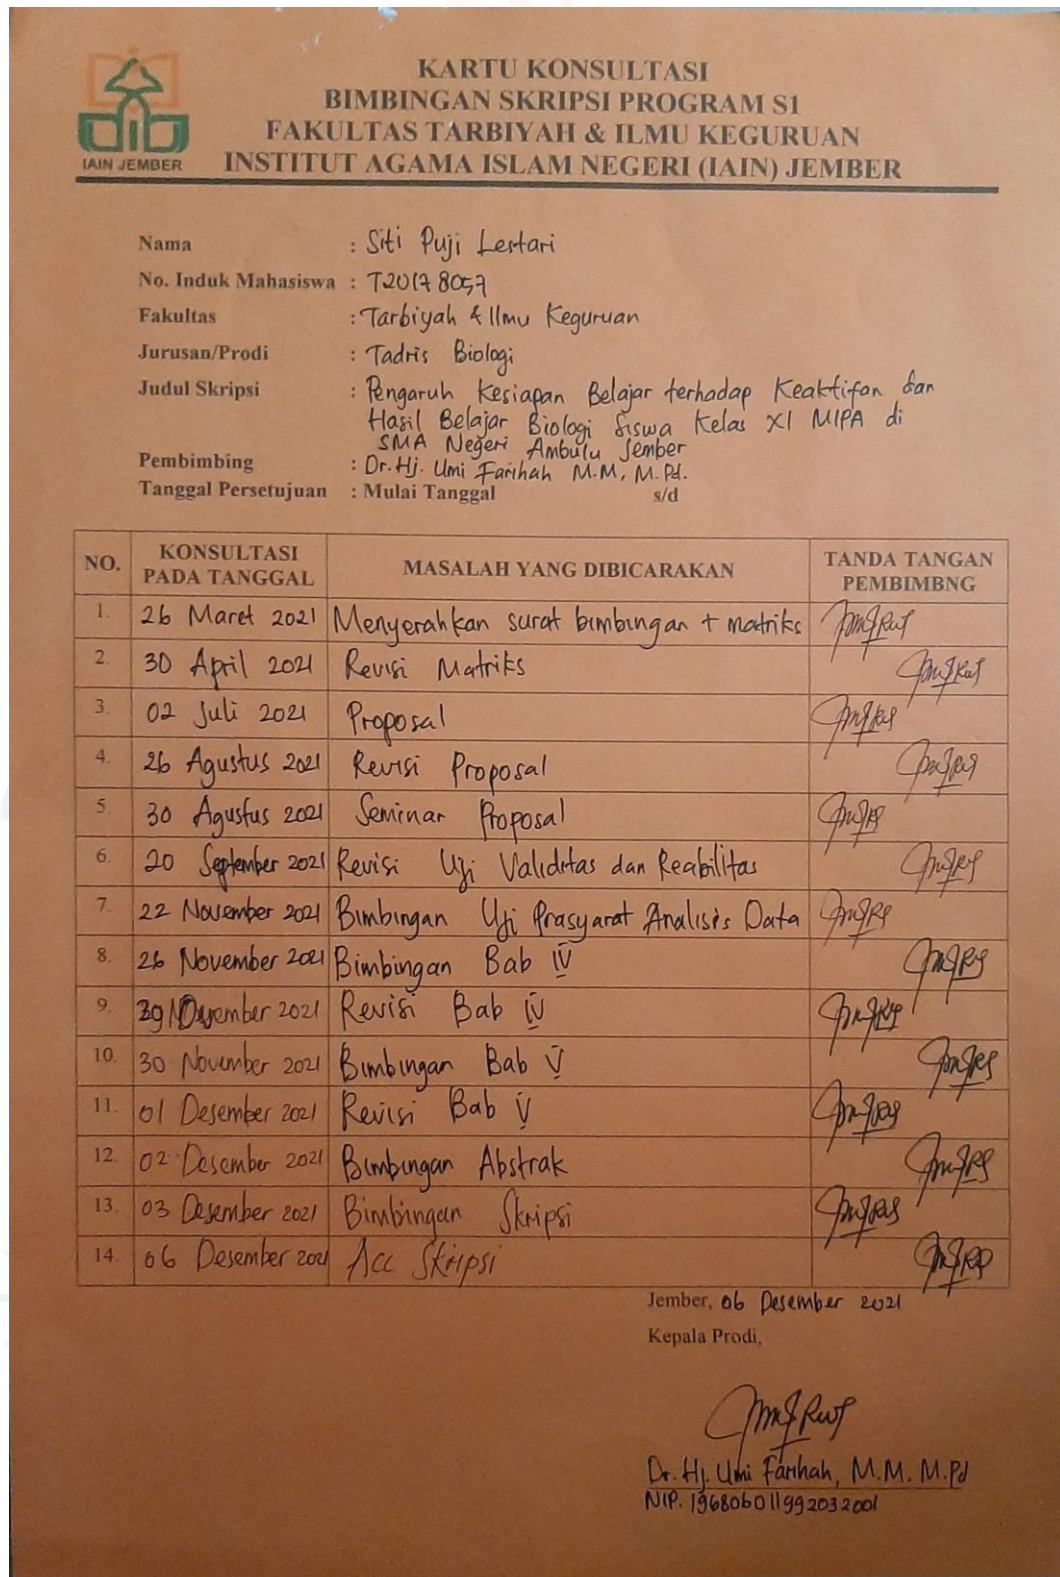 KARTU KONSULTASI
BIMBINGAN SKRIPSI PROGRAM S1
FAKULTAS TARBIYAH & ILMU KEGURUAN
INSTITUT AGAMA ISLAM NEGERI (IAIN) JEMBER
IAIN JEMBER
Nama : Siti Puji Lestari
No. Induk Mahasiswa : T20178057
Fakultas : Tarbiyah & Ilmu Keguruan
Jurusan/Prodi : Tadris Biologi
Judul Skripsi : Pengaruh Kesiapan Belajar terhadap Keaktifan dan
Hasil Belajar Biologi Siswa Kelas XI MIPA di
SMA Negeri Ambulu Jember
Pembimbing : Dr. Hj. Umi Farihah M.M, M.Pd.
Tanggal Persetujuan : Mulai Tanggal s/d
NO. KONSULTASI PADA TANGGAL MASALAH YANG DIBICARAKAN TANDA TANGAN PEMBIMBNG
1. 26 Maret 2021 Menyerahkan surat bimbingan + matriks
2. 30 April 2021 Revisi Matriks
3. 02 Juli 2021 Proposal
4. 26 Agustus 2021 Revisi Proposal
5. 30 Agustus 2021 Seminar Proposal
6. 20 September 2021 Revisi Uji Validitas dan Reabilitas
7. 22 November 2021 Bimbingan Uji Prasyarat Analisis Data
8. 26 November 2021 Bimbingan Bab IV
9. 2021 Revisi Bab IV
10. 30 November 2021 Bimbingan Bab V
11. 01 Desember 2021 Revisi Bab V
12. 02 Desember 2021 Bimbingan Abstrak
13. 03 Desember 2021 Bimbingan Skripsi
14. 06 Desember 2021 Acc Skripsi
Jember, 06 Desember 2021
Kepala Prodi,
Dr. Hj. Umi Farihah, M.M. M.Pd
NIP. 196806011992032001